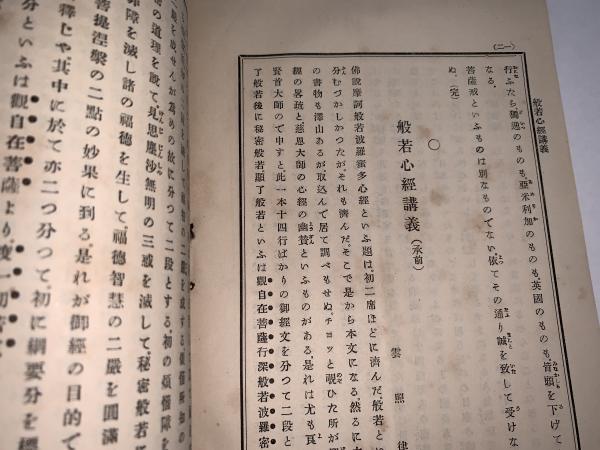 （一二）
般若心經講義
行ふたら、獨逸のものも、亞米利加のものも、英國のものも、皆頭を下げて
なる。
菩薩戒といふものは別なものでない依てその通り誠を致して受けな
ぬ。（完）
○
般若心經講義（承前）
雲照律
佛說摩訶般若波羅蜜多心經といふ題は、初二席ほどに濟んだ。般若と
分むづかしかつたがそれも濟んだ。そこで是から本文になる。然るに
の書物も澤山あるが取込んで居て調べもせぬ。チヨッと覗ひた所が
經の畧疏と慈恩大師の心經の幽賛といふものがある。是れは尤も良
賢首大師ので申すと、此一本十四行ばかりの御經文を分つて二段と
了般若後に秘密般若顯了般若といふは觀自在菩薩行深般若波羅密
分といふは觀自在菩薩より度一切苦
釋じや、其中に於て亦二つ分つて、初に綱要分を標
菩提涅槃の二點の妙果に到る。是れが御經の目的で
障を滅し諸の福德を生して、福德智慧の二嚴を圓滿
の道理を說て、見思塵沙無明の三惑を滅して、秘密般若
二嚴を成せんが爲めの故に分つて二段とする。初の煩惱障を